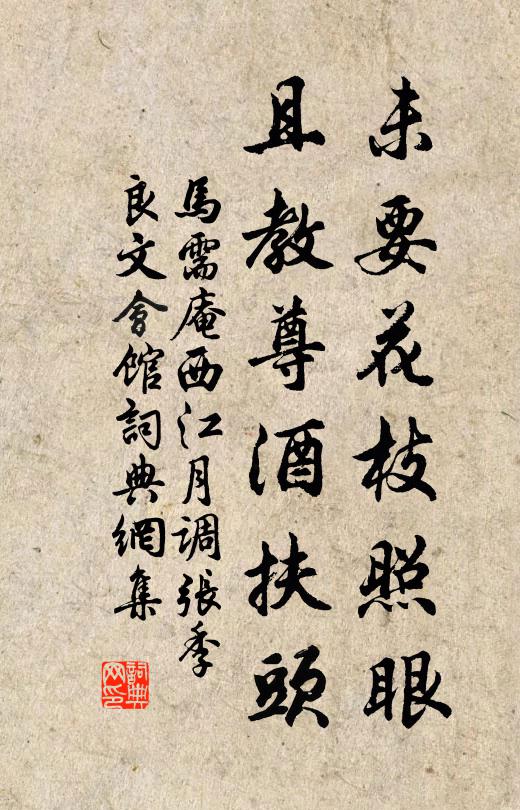 未要花枝照眼
且教尊酒扶頭
馬霈庵西江月調張季
良文會館詞典網集
詞典網印